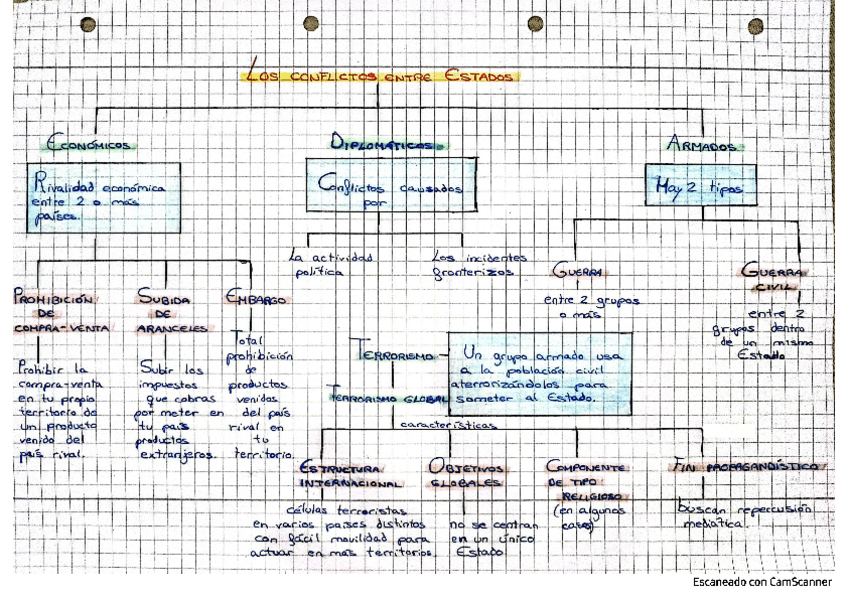 LOS CONFLICTOS ENTRE ESTADOS
ECONÓMICOS
Rivalidad económica
entre 2 o más
países.
PROHIBICIÓN
DE
COMPRA-VENTA
Prohibir la
compra-venta
en tu propio
territorio de
un producto
venido del
país rival.
SUBIDA
DE
ARANCELES
Subir los
impuestos
que cobras
por meter en
tu país
productos
extranjeros.
EMBARGO
Total
prohibición
de
productos
venidos
del país
rival en
tu
territorio.
DIPLOMÁTICOS
Conflictos causados
por
La actividad
política
Los incidentes
fronterizos
ARMADOS
Hay 2 tipos
GUERRA
entre 2 grupos
o más
GUERRA
CIVIL
entre 2
grupos dentro
de un mismo
Estado
TERRORISMO
Un grupo armado usa
a la población civil
aterrorizándolos para
someter al Estado.
TERRORISMO GLOBAL
características
ESTRUCTURA
INTERNACIONAL
células terroristas
en varios países distintos
con fácil movilidad para
actuar en más territorios.
OBJETIVOS
GLOBALES
no se centran
en un único
Estado
COMPONENTE
DE TIPO
RELIGIOSO
(en algunos
casos)
FIN PROPAGANDÍSTICO
buscan repercusión
mediática.
Escaneado con CamScanner